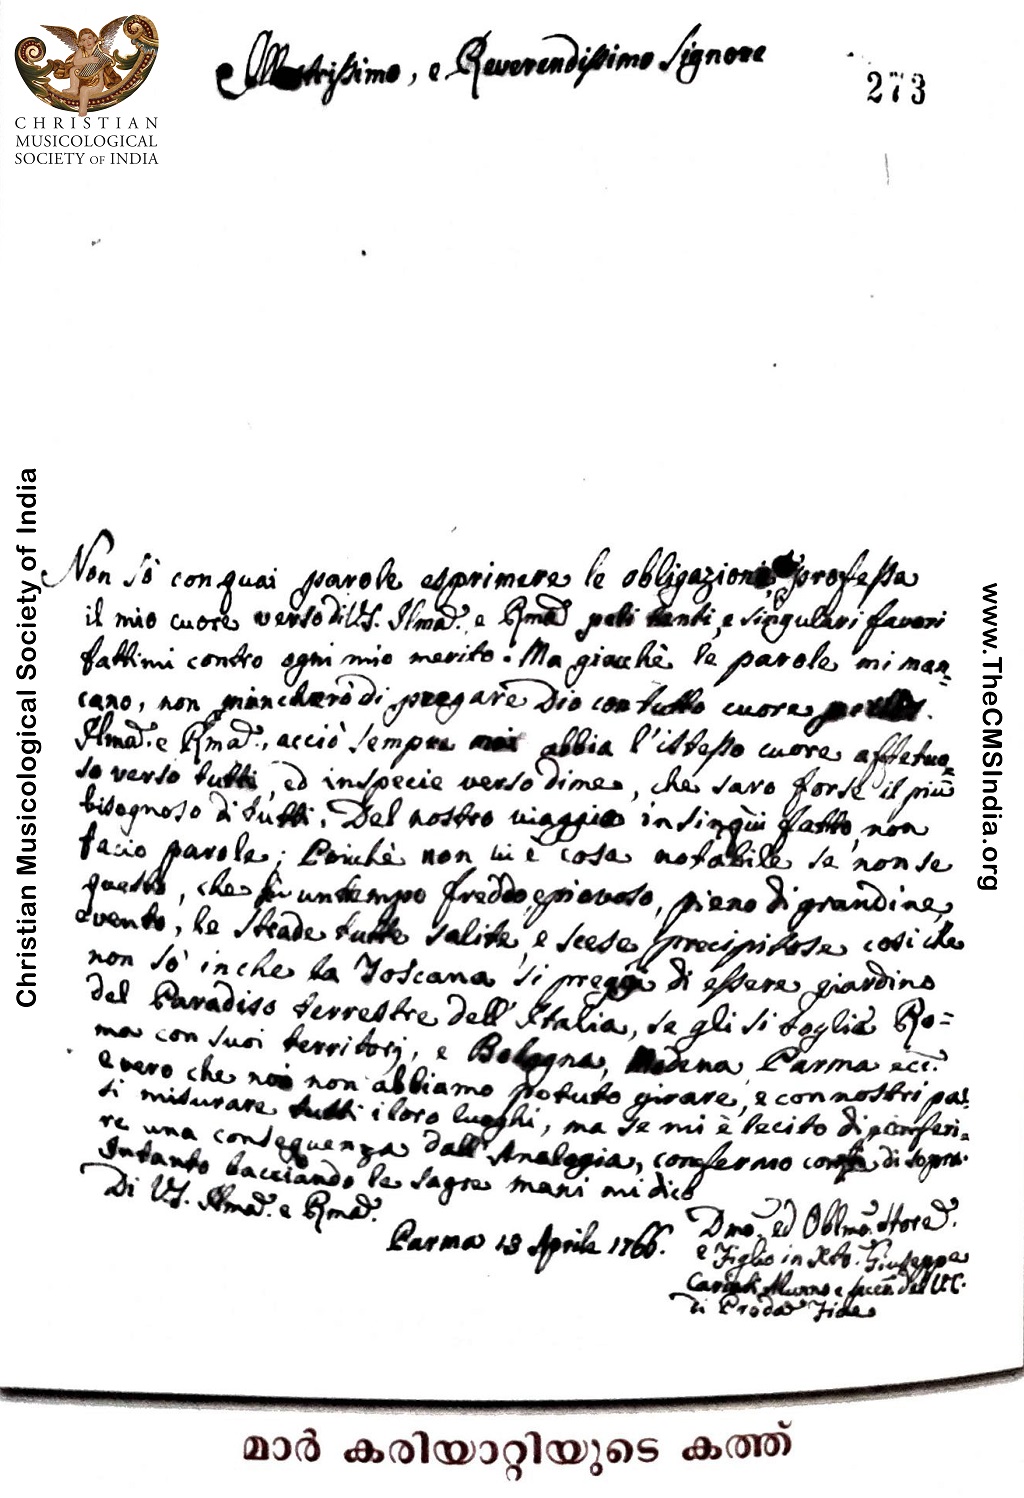 CHRISTIAN
MUSICOLOGICAL
SOCIETY OF INDIA
Illustrissimo, e Reverendissimo Signore
273
Non sò con quai parole esprimere le obligazioni, professa
il mio cuore verso di V.S. Ilma. e Rma. tanti, e singulari favori
fattimi contro ogni mio merito. Ma giacchè le parole mi man=
cano, non mancherò di pregare Dio con tutto cuore
Ilma. e Rma., acciò sempre abbia l'istesso cuore affetuo=
so verso tutti, ed inspecie verso di me, che sarò forse il più
bisognoso di tutti. Del nostro viaggio insinqùi fatto, non
facio parole; Poichè non vi è cosa notabile se non se
questo, che fù un tempo freddo, e piovoso, pieno di grandine,
e vento, le strade tutte salite, e scese precipitose così che
non sò in che la Toscana si preggi di essere giardino
del Paradiso terrestre dell'Italia, se gli si toglia Ro=
ma con suoi territorj, e Bologna, Modena, Parma ecc.
e vero che noi non abbiamo potuto girare, e con nostri pas=
si misurare tutti i loro luoghi, ma se mi è lecito di
re una conseguenza dall'Analogia, confermo di sopra.
Intanto bacciando le sagre mani mi dico
Di V.S. Ilma. e Rma.
Parma 13 Aprile 1766.
Dmo. ed Oblmo.
e Figlio in Xto. Giuseppe
Cariati Alunno e del
di Proda Fide
മാർ കരിയാറ്റിയുടെ കത്ത്
Christian Musicological Society of India
www.TheCMSIndia.org